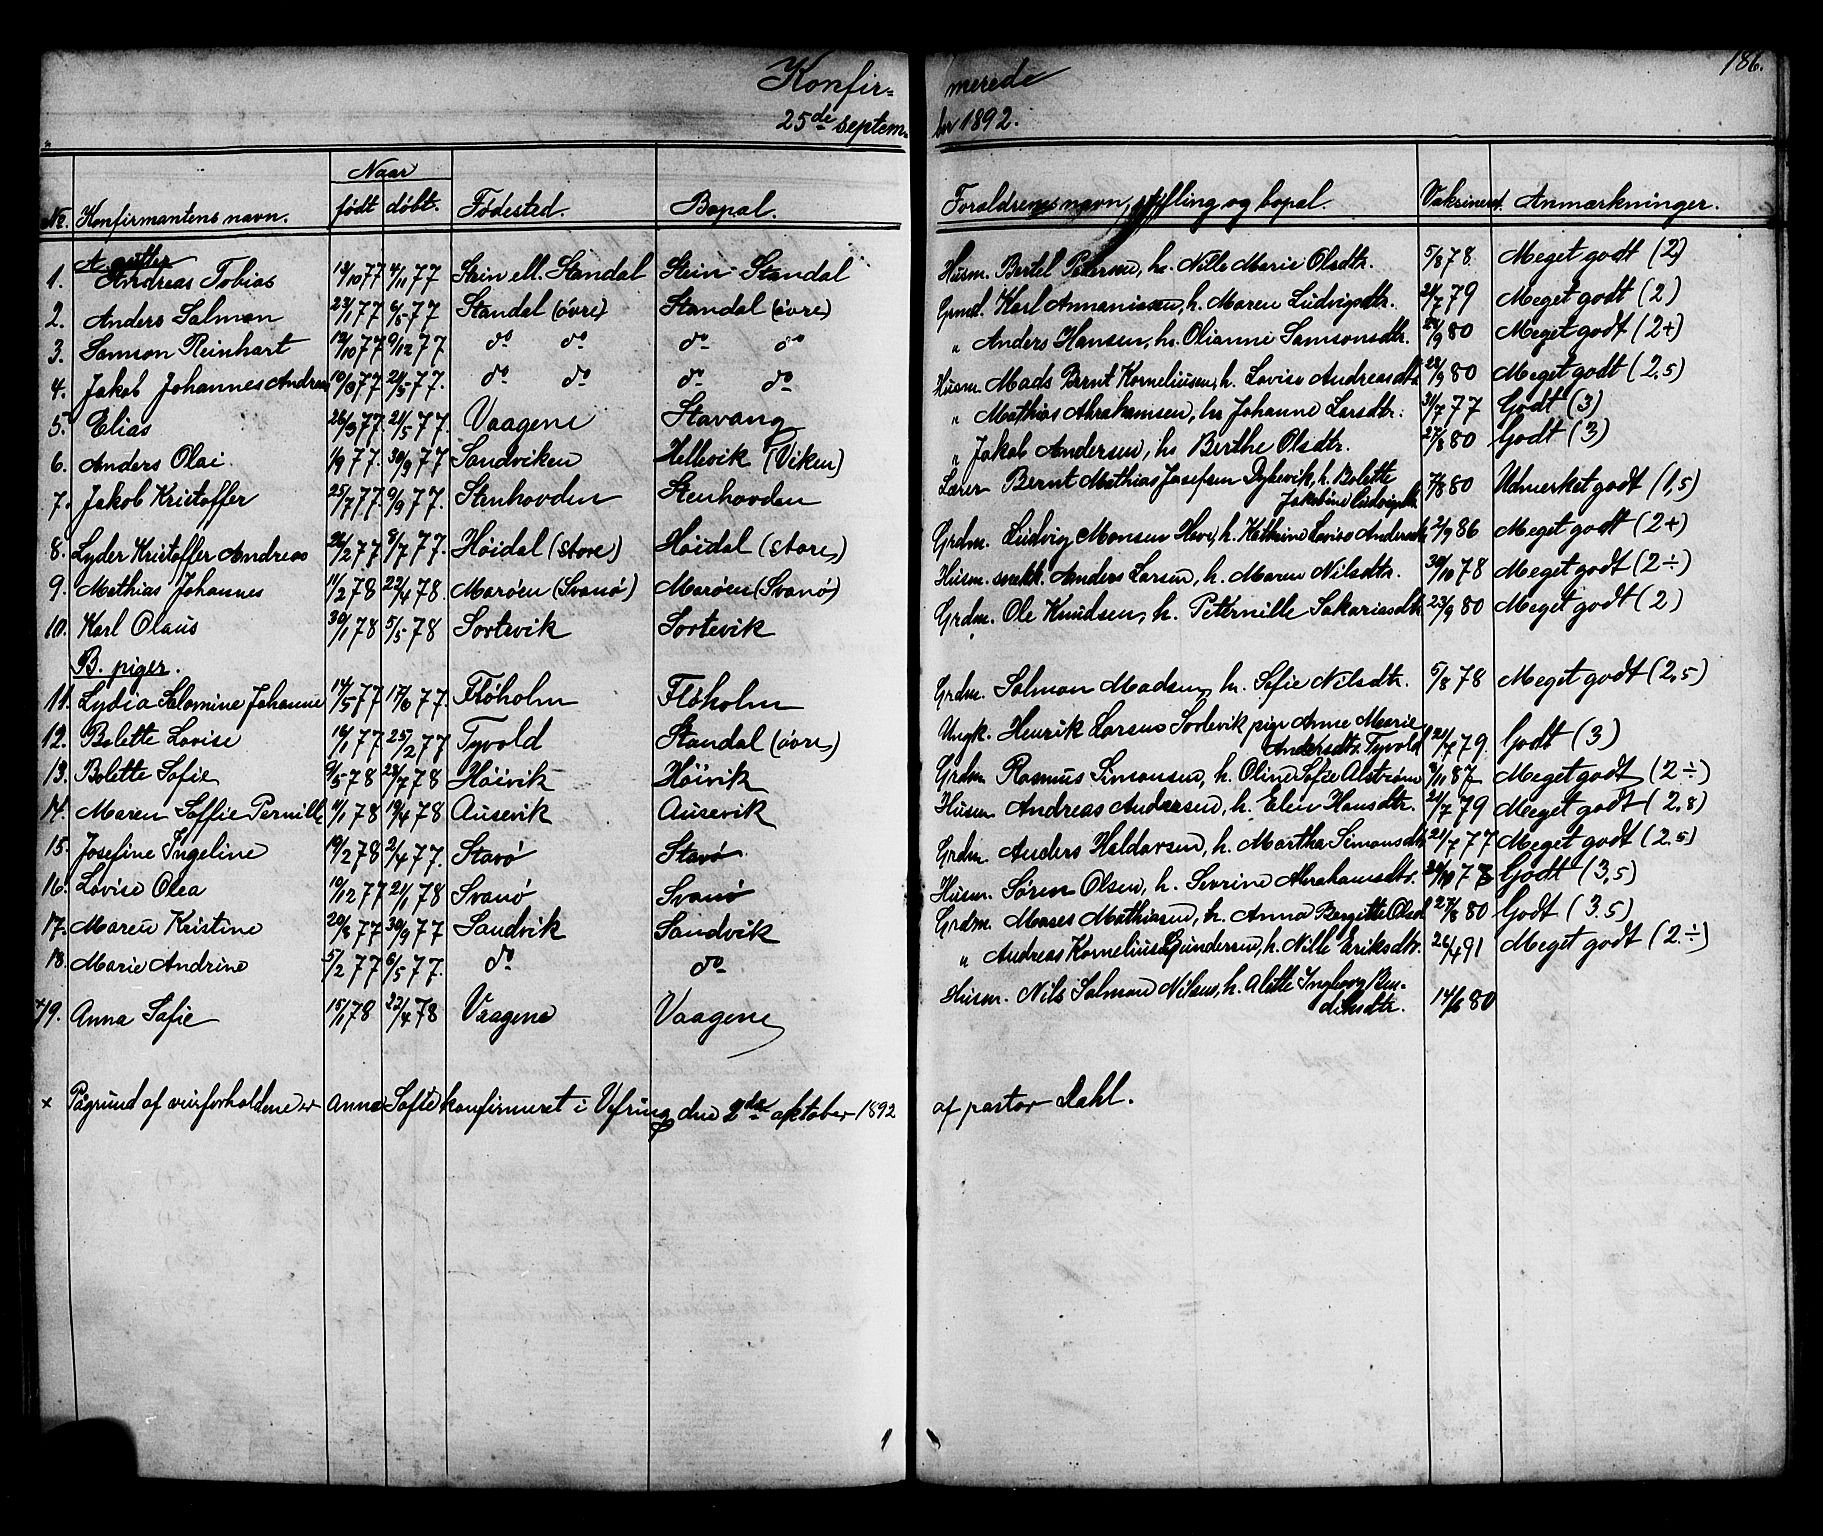 186.
Konfirmerede
25de september 1892.
Naar
No. Konfirmantens navn. født døbt. Fødested. Bopæl. Forældrenes navn, stilling og bopæl. Vaksineret. Anmærkninger.
A gutter
1. Andreas Tobias 19/10 77 4/11 77 Stein ell. Standal Stein Standal Husm. Bertel Petersen, h. Nille Marie Olsdtr. 5/8 78. Meget godt (2)
2. Anders Salmon 23/1 77 4/5 77 Standal (øvre) Standal (øvre) Grmd. Karl Annanissen, h. Maren Ludvigsdtr. 21/7 79 Meget godt (2)
3. Samson Reinhart 12/10 77 9/12 77 do do do do " Anders Hansen, h. Olianne Samsonsdtr. 24/9 80 Meget godt (2+)
4. Jakob Johannes Andreas 77 77. do do do do Husm. Mads Bernt Korneliusen, h. Lovise Andreasdtr. 23/9 80 Meget godt (2,5)
5. Elias 26/3 77 21/5 77. Vaagene Stavang " Mathias Abrahamsen, h. Johanne Larsdtr. 31/7 77 Godt (3)
6. Anders Olai. 1/9 77. 30/9 77 Sandviken Hellevik (Viken) " Jakob Andersen, h. Berthe Olsdtr. 27/8 80 Godt (3)
7. Jakob Kristoffer 25/7 77 9/9 77. Stenhovden Stenhovden Lærer Bernt Mathias Josefsen Dykevik, h. Bolette
Jakobine Ludvigsdtr. 7/8 80 Udmerket godt (1,5)
8. Lyder Kristoffer Andreas 26/2 77 8/7 77. Høidal (store) Høidal (store) Grdm. Ludvig Monsen Hove, h. Kathrine Lovise Andersdtr. 2/9 86 Meget godt (2+)
9. Mathias Johannes 11/2 78 22/4 78. Marøen (Svanø) Marøen (Svanø) Husm. snekk. Anders Larsen, h. Maren Nilsdtr. 30/10 78 Meget godt (2÷)
10. Karl Olaus 30/1 78 5/5 78 Sortevik Sortevik Grdm. Ole Knudsen, h. Peternille Sakariasdtr. 23/9 80 Meget godt (2)
B. piger.
11. Lydia Salomine Johanne 14/5 77 17/6 77. Fløholm Fløholm Grdm. Salmon Madsen, h. Sofie Nilsdtr. 5/8 78 Meget godt (2,5)
12. Bolette Lovise 16/1 77 25/2 77 Tyvold Standal (øvre) Ungk. Henrik Larsen Sortevik pige Anne Marie
Andersdtr. Tyvold 21/7 79. Godt (3)
13. Bolette Sofie 9/5 78 28/7 78 Høivik Høivik Grdm Rasmus Simonsen, h. Oline Sofie Alstrøm 8/11 87 Meget godt (2÷)
14. Maren Soffie Pernille 11/1 78 19/4 78 Ausevik Ausevik Husm Andreas Andersen, h. Elen Hansdtr. 21/7 79 Meget godt (2,8)
15. Josefine Ingeline 19/2 78 2/4 77. Stavø Stavø Grdm. Anders Haldorsen, h. Martha Simonsdtr. 21/7 77 Meget godt (2.5)
16. Lovise Olea 10/12 77 21/1 78 Svanø Svanø Husm. Søren Olsen, h. Sevrine Abrahamsdtr. 78 Godt (3,5)
17. Maren Kristine 20/8 77 30/9 77 Sandvik Sandvik Grdm. Moses Mathiasen, h. Anna Bergitte Olsd. 27/8 80 Godt (3.5)
18. Marie Andrine 5/2 77 6/5 77. do do " Andreas Kornelius Gundersen, h. Nille Eriksdtr. 26/4 91 Meget godt (2÷)
+19. Anna Sofie 15/1 78 22/4 78 Vaagene Vaagene Husm. Nils Salmon Nilsen, h. Alette Ingeborg Ben-
diksdtr. 14/6 80
x Pågrund af veirforholdene er Anna Sofie konfirmeret i Vefring den 2de oktober 1892 af pastor Dahl.